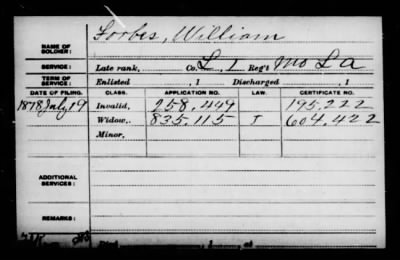 NAME OF SOLDIER: Forbes, William
SERVICE: Late rank, Co. L, 1 Reg't Mo L a
TERM OF SERVICE: Enlisted , 1 Discharged , 1
DATE OF FILING. CLASS. APPLICATION NO. LAW. CERTIFICATE NO.
1878 July 19 Invalid, 258.449 195.222
Widow, 835.115 J 604.422
Minor,
ADDITIONAL SERVICES:
REMARKS:
, 1 , at